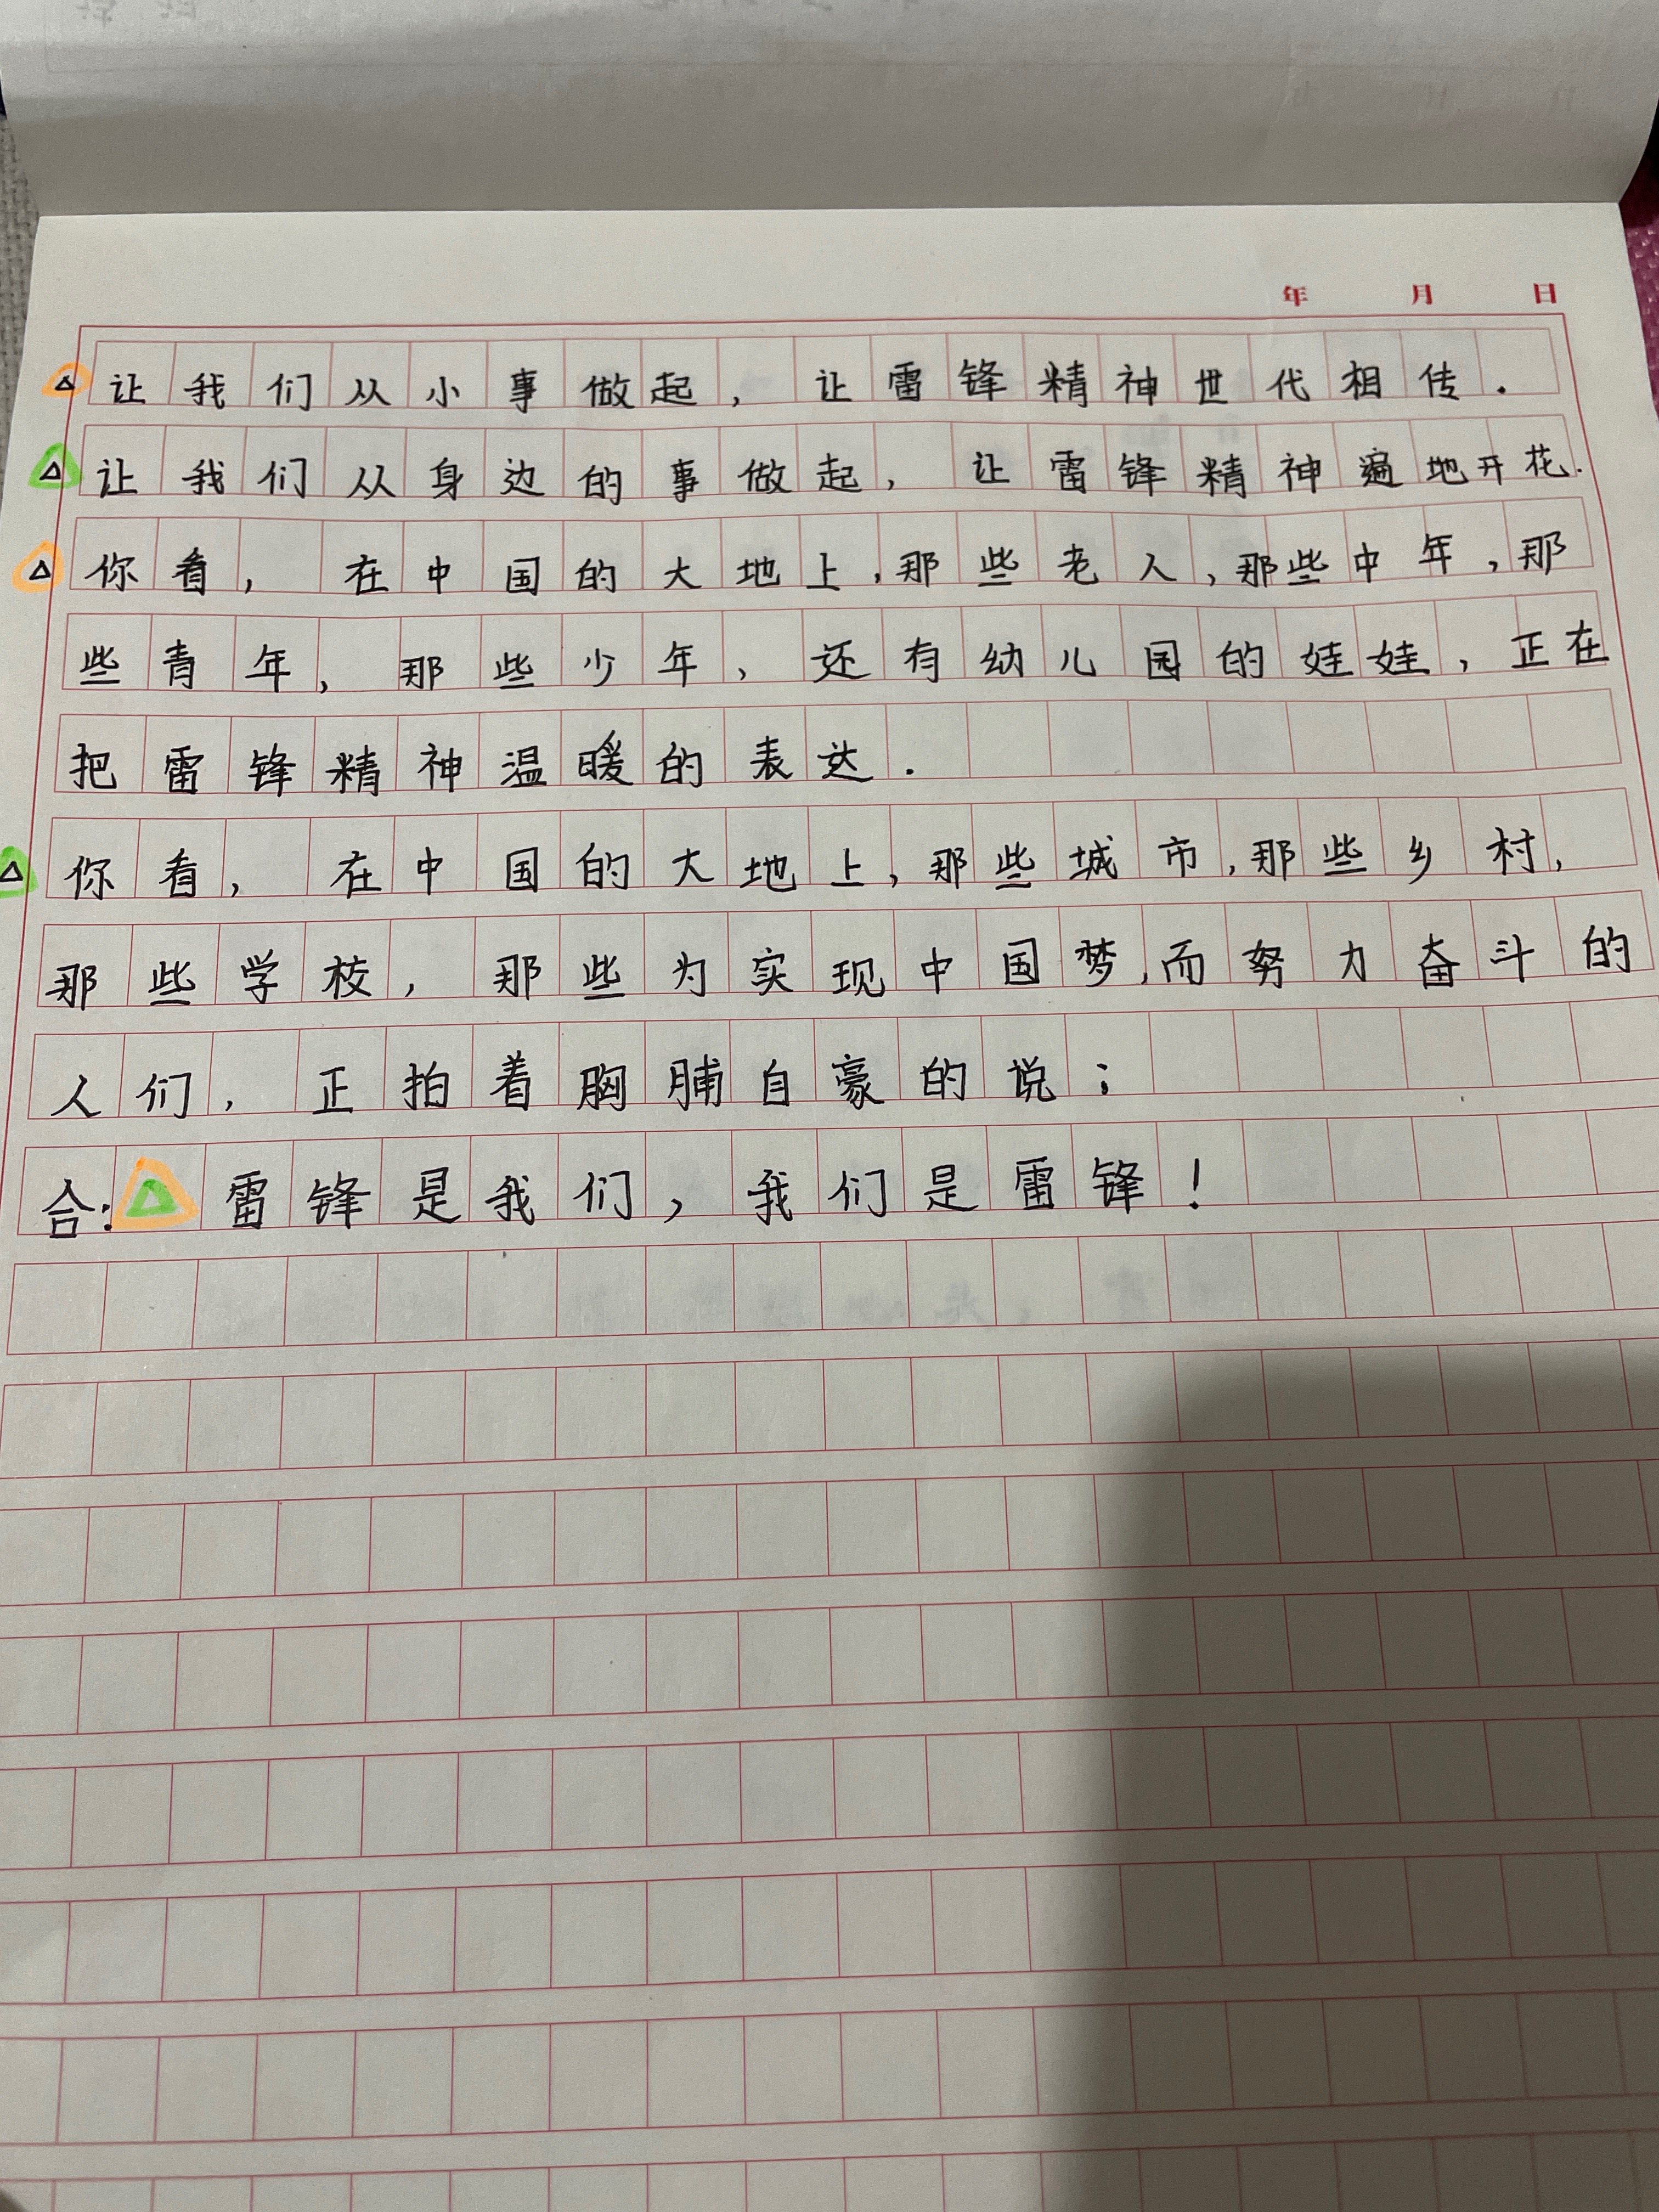 年 月 日
△ 让我们从小事做起，让雷锋精神世代相传.
△ 让我们从身边的事做起，让雷锋精神遍地开花.
△ 你看，在中国的大地上，那些老人，那些中年，那
些青年，那些少年，还有幼儿园的娃娃，正在
把雷锋精神温暖的表达.
△ 你看，在中国的大地上，那些城市，那些乡村，
那些学校，那些为实现中国梦，而努力奋斗的
人们，正拍着胸脯自豪的说；
合：△ 雷锋是我们，我们是雷锋！